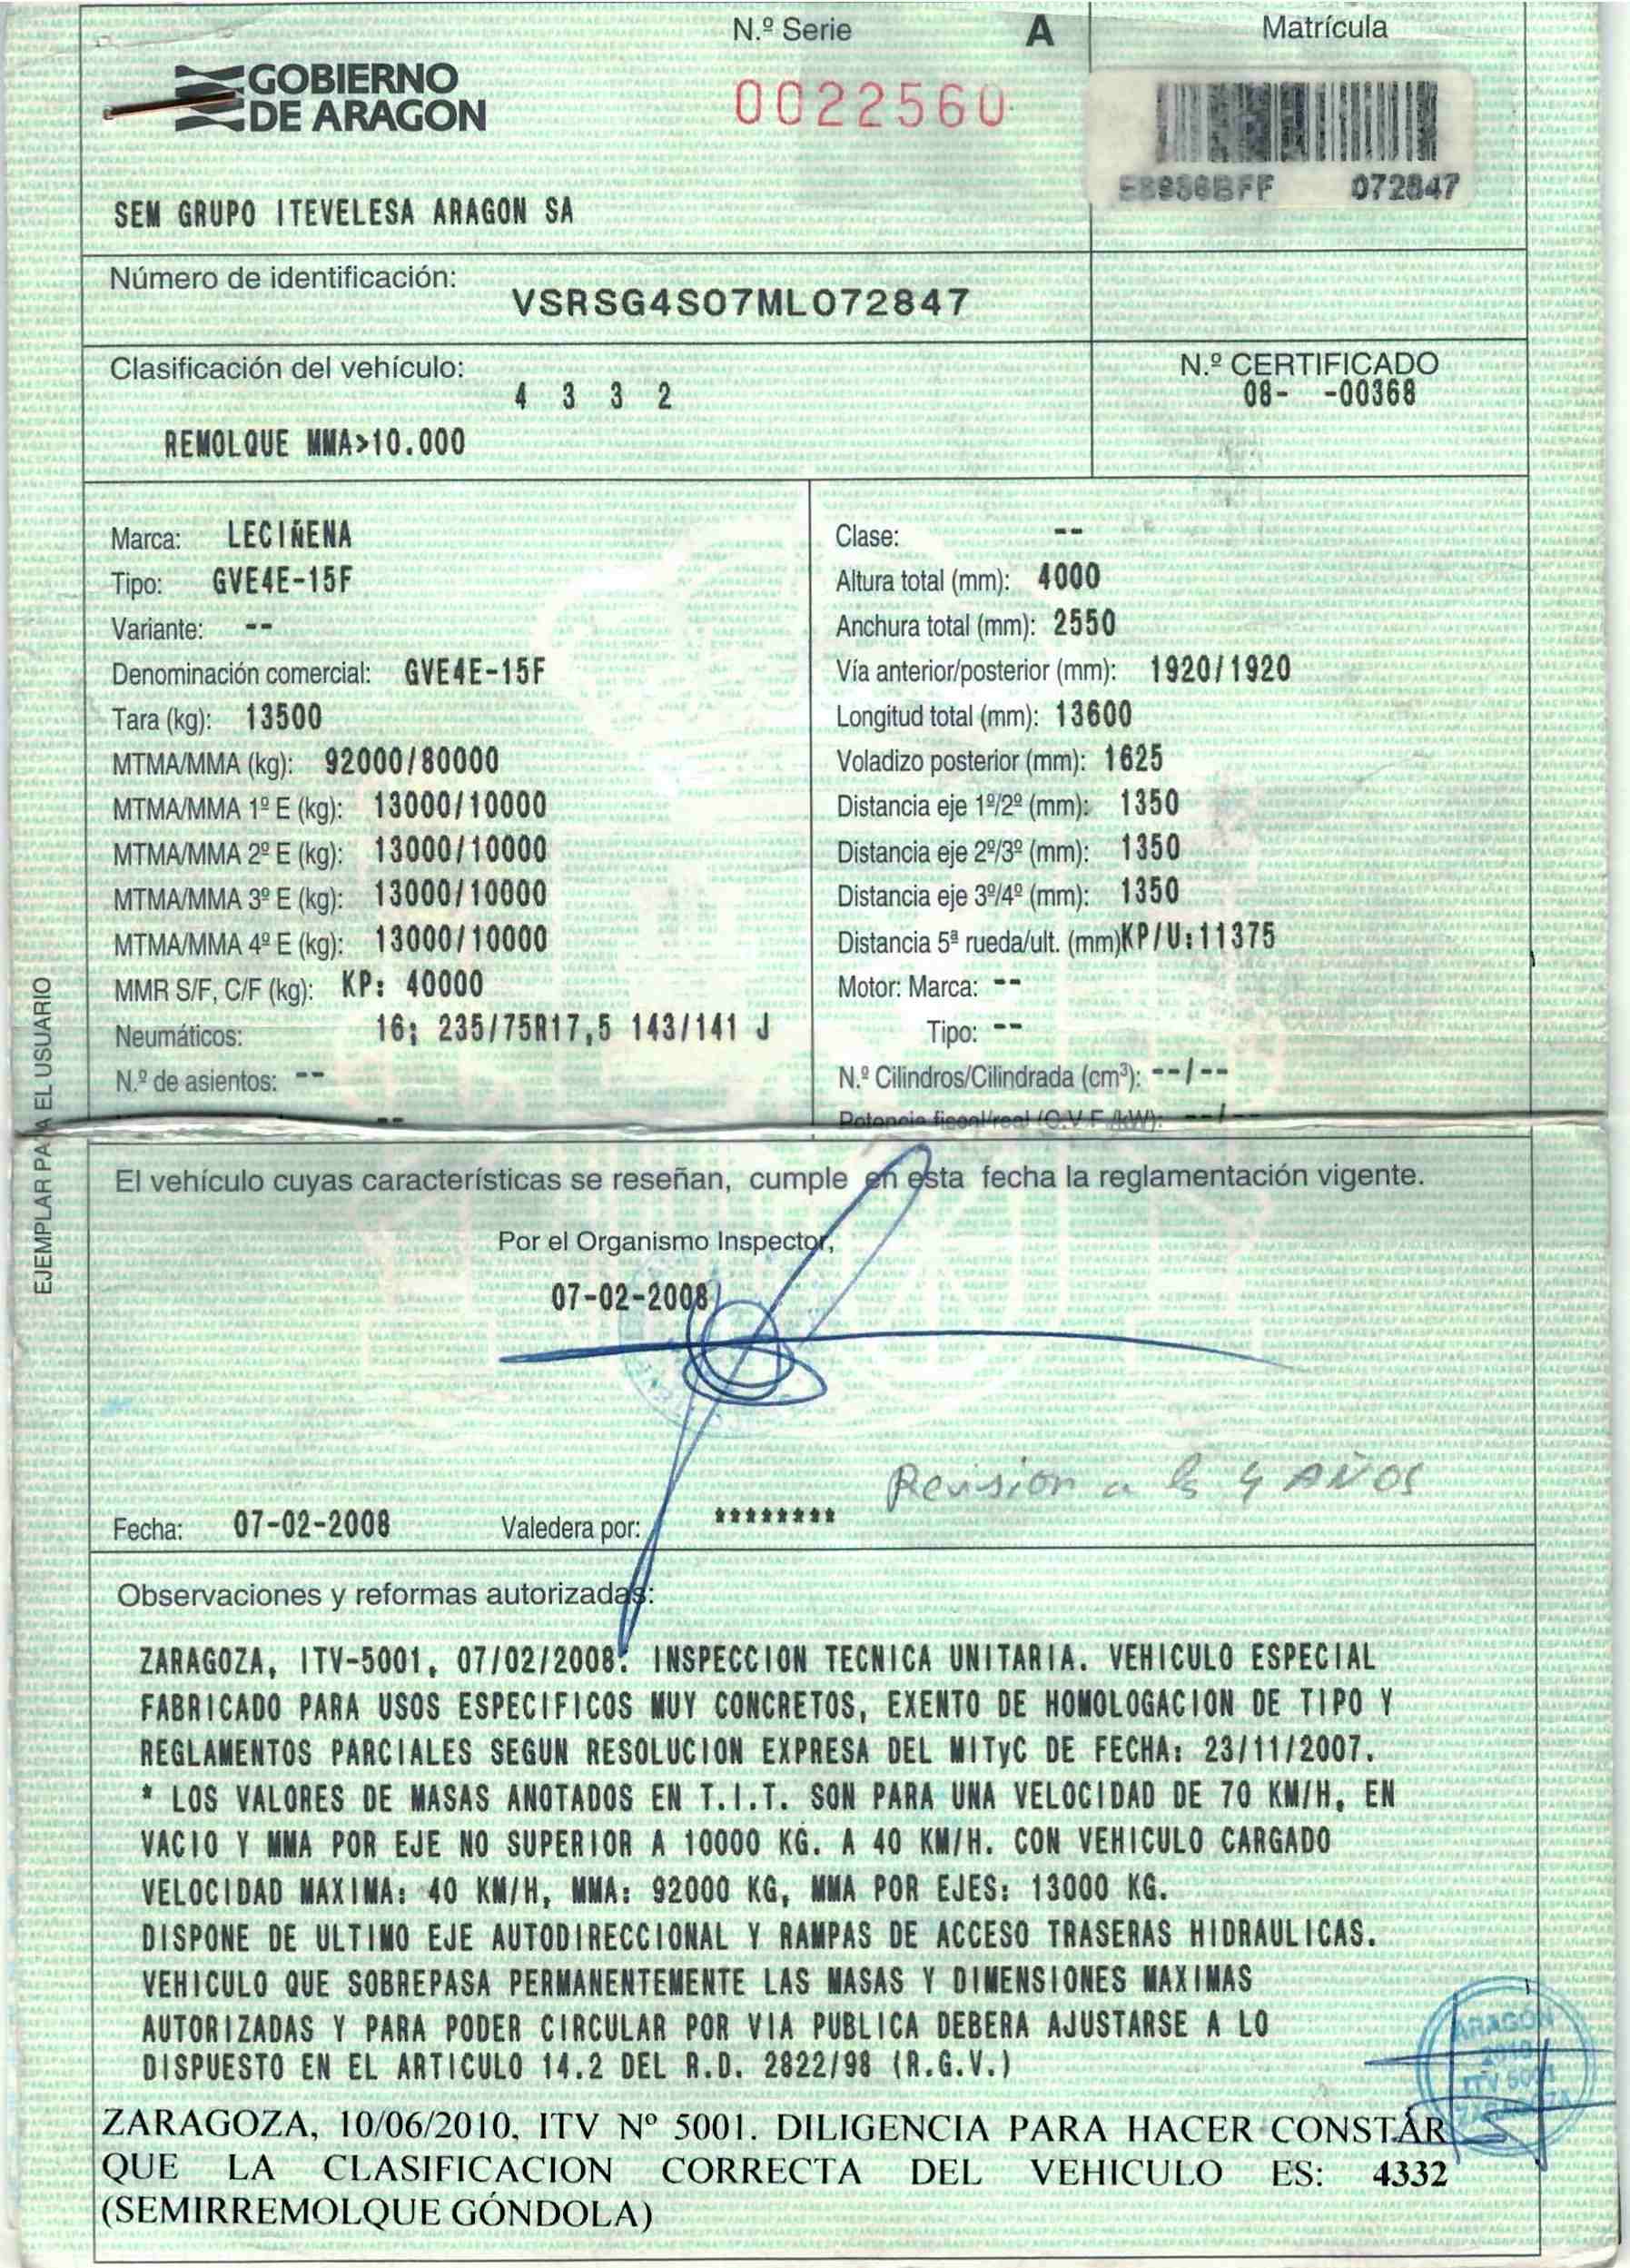 N.º Serie A Matrícula
GOBIERNO
DE ARAGON
0022560
072847
SEM GRUPO ITEVELESA ARAGON SA
Número de identificación:
VSRSG4S07ML072847
Clasificación del vehículo:
4 3 3 2
REMOLQUE MMA>10.000
N.º CERTIFICADO
08- -00368
Marca: LECIÑENA
Tipo: GVE4E-15F
Variante: --
Denominación comercial: GVE4E-15F
Tara (kg): 13500
MTMA/MMA (kg): 92000/80000
MTMA/MMA 1º E (kg): 13000/10000
MTMA/MMA 2º E (kg): 13000/10000
MTMA/MMA 3º E (kg): 13000/10000
MTMA/MMA 4º E (kg): 13000/10000
MMR S/F, C/F (kg): KP: 40000
Neumáticos: 16; 235/75R17,5 143/141 J
N.º de asientos: --
--
Clase: --
Altura total (mm): 4000
Anchura total (mm): 2550
Vía anterior/posterior (mm): 1920/1920
Longitud total (mm): 13600
Voladizo posterior (mm): 1625
Distancia eje 1º/2º (mm): 1350
Distancia eje 2º/3º (mm): 1350
Distancia eje 3º/4º (mm): 1350
Distancia 5ª rueda/ult. (mm)KP/U:11375
Motor: Marca: --
Tipo: --
N.º Cilindros/Cilindrada (cm³): --/--
Potencia fiscal/real (C.V.F./kW): --/--
EJEMPLAR PARA EL USUARIO
El vehículo cuyas características se reseñan, cumple en esta fecha la reglamentación vigente.
Por el Organismo Inspector,
07-02-2008
Revisión a ls 4 AÑOS
Fecha: 07-02-2008 Valedera por: ********
Observaciones y reformas autorizadas:
ZARAGOZA, ITV-5001, 07/02/2008. INSPECCION TECNICA UNITARIA. VEHICULO ESPECIAL
FABRICADO PARA USOS ESPECIFICOS MUY CONCRETOS, EXENTO DE HOMOLOGACION DE TIPO Y
REGLAMENTOS PARCIALES SEGUN RESOLUCION EXPRESA DEL MITyC DE FECHA: 23/11/2007.
* LOS VALORES DE MASAS ANOTADOS EN T.I.T. SON PARA UNA VELOCIDAD DE 70 KM/H, EN
VACIO Y MMA POR EJE NO SUPERIOR A 10000 KG. A 40 KM/H. CON VEHICULO CARGADO
VELOCIDAD MAXIMA: 40 KM/H, MMA: 92000 KG, MMA POR EJES: 13000 KG.
DISPONE DE ULTIMO EJE AUTODIRECCIONAL Y RAMPAS DE ACCESO TRASERAS HIDRAULICAS.
VEHICULO QUE SOBREPASA PERMANENTEMENTE LAS MASAS Y DIMENSIONES MAXIMAS
AUTORIZADAS Y PARA PODER CIRCULAR POR VIA PUBLICA DEBERA AJUSTARSE A LO
DISPUESTO EN EL ARTICULO 14.2 DEL R.D. 2822/98 (R.G.V.)
ARAGÓN
ITV 5001
ZARAGOZA, 10/06/2010, ITV Nº 5001. DILIGENCIA PARA HACER CONSTAR
QUE LA CLASIFICACION CORRECTA DEL VEHICULO ES: 4332
(SEMIRREMOLQUE GÓNDOLA)